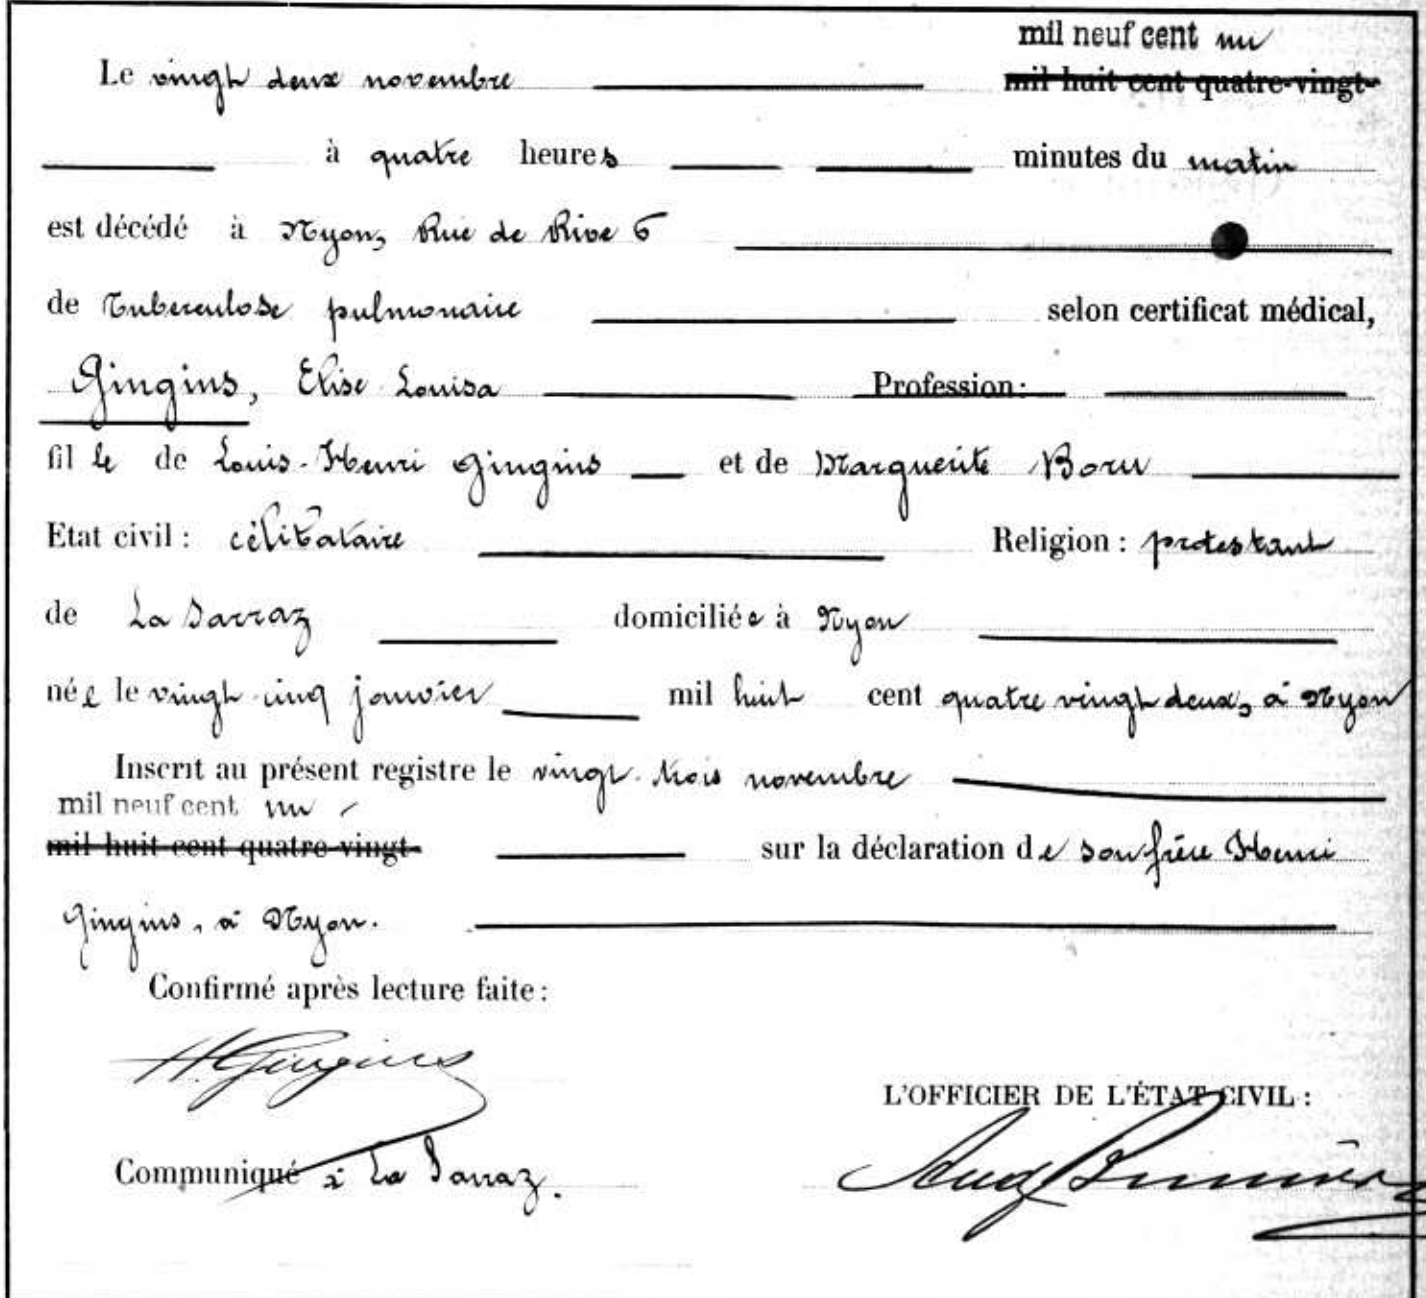 mil neuf cent un
Le vingt deux novembre mil huit cent quatre-vingt-
à quatre heures minutes du matin
est décédé à Nyon, Rue de Rive 6
de Tuberculose pulmonaire selon certificat médical,
Gingins, Elise Louisa Profession:
fille de Louis-Henri Gingins et de Marguerite Born
Etat civil: célibataire Religion: protestant
de La Sarraz domiciliée à Nyon
née le vingt-cinq janvier mil huit cent quatre vingt deux, à Nyon
Inscrit au présent registre le vingt-trois novembre
mil neuf cent un
mil huit cent quatre-vingt- sur la déclaration de son frère Henri
Gingins, à Nyon.
Confirmé après lecture faite:
H. Gingins
L'OFFICIER DE L'ÉTAT CIVIL:
Communiqué à La Sarraz.